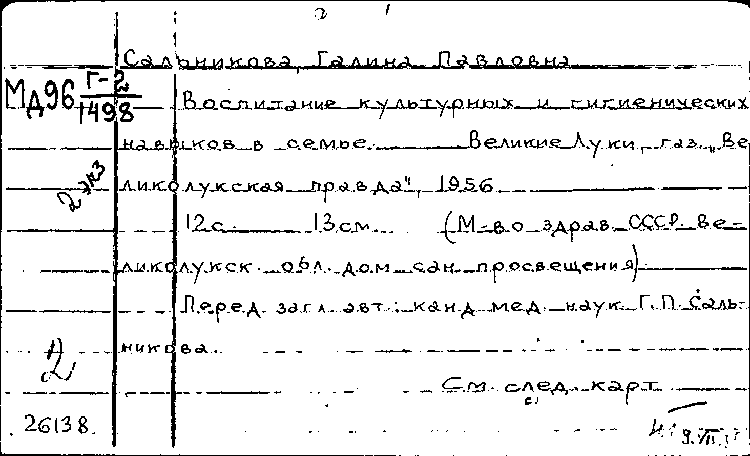 Сальникова, Галина Павловна
Мд96 Г-2/1498
Воспитание культурных и гигиенических
навыков в семье. Великие Луки, газ. „Ве-
2 экз
ликолукская правда", 1956
12 с. 13 см. (М-во здрав. СССР. Ве-
ликолукск. обл. дом сан. просвещения)
Перед загл. авт.: канд. мед. наук Г.П. Саль-
никова.
2
См. след. карт.
26138.